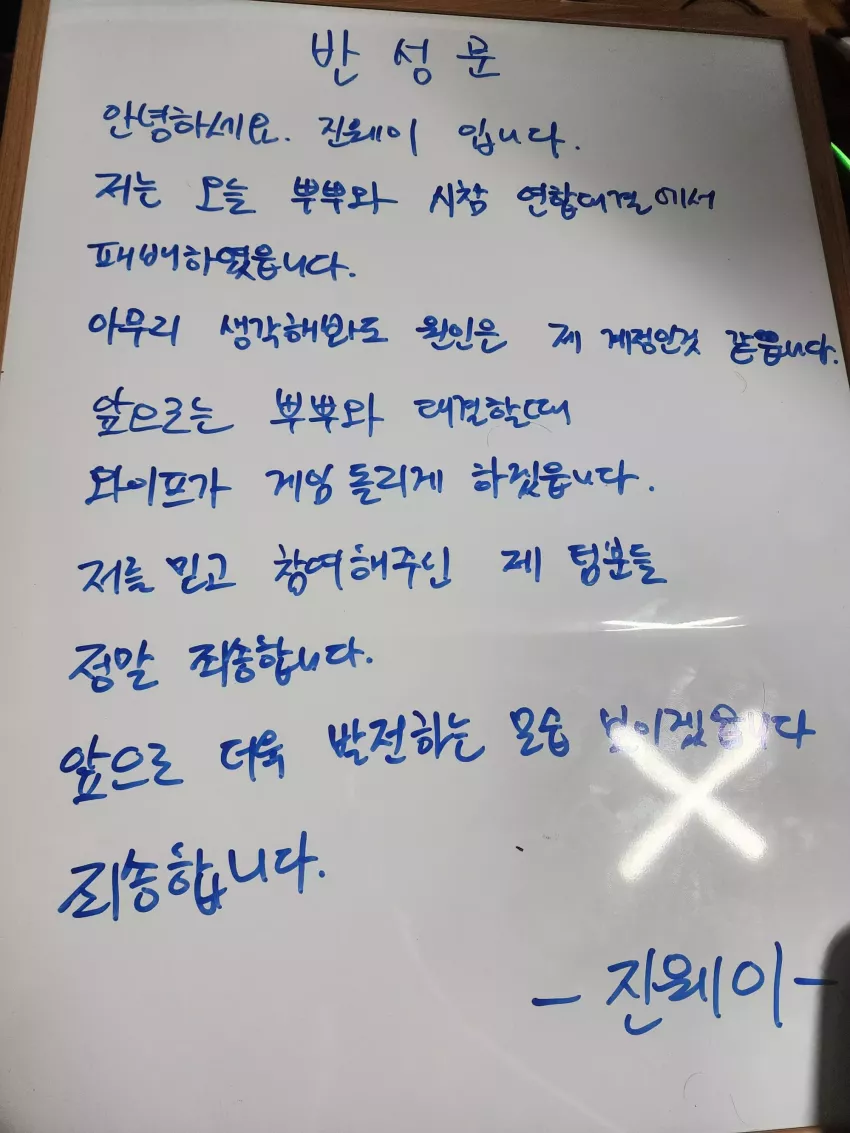 반성문
안녕하세요. 진웨이 입니다.
저는 오늘 뿌뿌와 시참 연합대결에서
패배하였읍니다.
아무리 생각해봐도 원인은 제 계정인것 같읍니다.
앞으로는 뿌뿌와 대결할때
와이프가 게임 돌리게 하겠읍니다.
저를 믿고 참여해주신 제 팀분들
정말 죄송합니다.
앞으로 더욱 발전하는 모습 보이겠읍니다
죄송합니다.
- 진웨이 -